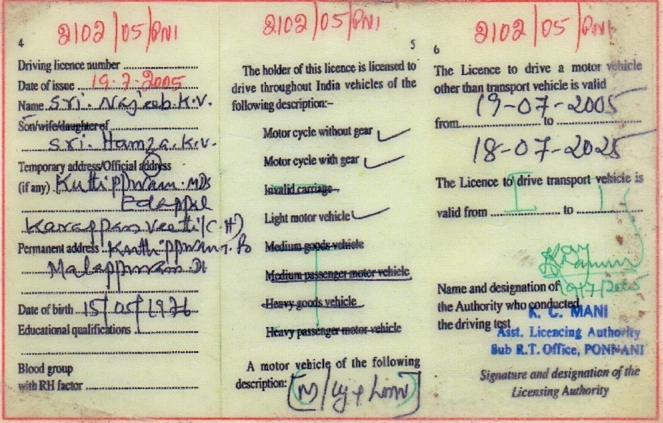 4
2102/05/PNI
Driving licence number
Date of issue 19-7-2005
Name Sri. Najeeb.K.V.
Son/wife/daughter of
Sri. Hamza.K.V.
Temporary address/Official address
(if any) Kuttippuram
Edappal
Karappan Veetti(C.H)
Permanent address Kuttippuram
Malappuram Dt
Date of birth 15/05/1976
Educational qualifications
Blood group
with RH factor
5
2102/05/PNI
The holder of this licence is licensed to
drive throughout India vehicles of the
following description:-
Motor cycle without gear
Motor cycle with gear
Invalid carriage
Light motor vehicle
Medium goods vehicle
Medium passenger motor vehicle
Heavy goods vehicle
Heavy passenger motor vehicle
A motor vehicle of the following
description:
6
2102/05/PNI
The Licence to drive a motor vehicle
other than transport vehicle is valid
19-07-2005
from to
18-07-2025
The Licence to drive transport vehicle is
valid from to
19/7/2005
Name and designation of
the Authority who conducted
the driving test
K. C. MANI
Asst. Licencing Authority
Sub R.T. Office, PONNANI
Signature and designation of the
Licensing Authority